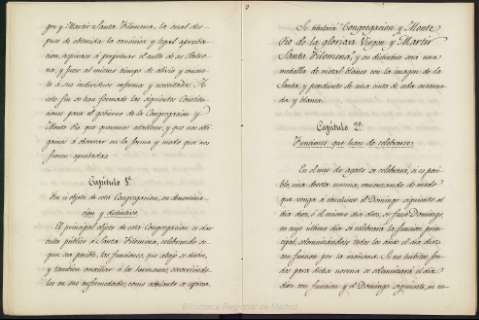 gen y Martir Santa Filomena, la cual des-
pues de obtenida la canónica y legal aproba-
cion, aspirase á perpetuar el culto de su Patro-
na, y fuese al mismo tiempo de alivio y consue-
lo á sus individuos enfermos y necesitados. A
este fin se han formado las siguientes Constitu-
ciones para el gobierno de la Congregacion y
Monte Pio que queremos establecer, y que nos obli-
gamos á observar en la forma y modo que nos
fueren aprobadas.
Capítulo 1º
Del objeto de esta Congregacion, su denomina-
cion y distintivo.
El principal objeto de esta Congregacion es dar
culto público á Santa Filomena, celebrando se-
gun sea posible, las funciones, que abajo se dirán,
y tambien auxiliar á los hermanos, socorriéndo-
les en sus enfermedades, como adelante se espresa.
Se titulará "Congregacion y Monte
Pio de la gloriosa Virgen y Martir
Santa Filomena," y su distintivo será una
medalla de metal blanco con la imagen de la
Santa, y pendiente de una cinta de color encarna-
da y blanca.
Capítulo 2º
Funciones que han de celebrarse.
En el mes de agosto se celebrará, si es posi-
ble, una devota novena, comenzando de modo
que venga á concluirse el Domingo siguiente al
dia diez, ó el mismo dia diez, si fuese Domingo,
en cuyo último dia se celebrará la funcion prin-
cipal, solemnizándose todos los años el dia diez
con funcion por la mañana. Si no hubiere fon-
dos para dicha novena se solemnizará el dia
diez con funcion y el Domingo siguiente, se
Biblioteca Regional de Madrid